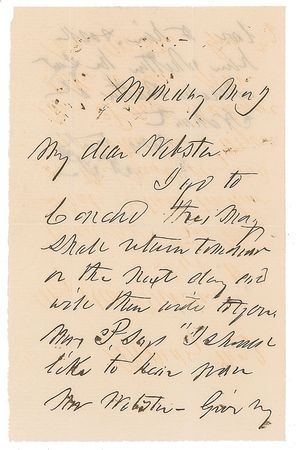 Monday Mor
My dear Webster
I go to
Concord this Mor
shall return tomorrow
or the next day and
will then write to you.
Mrs P. says "I should
like to hear from
Mr Webster - Give my